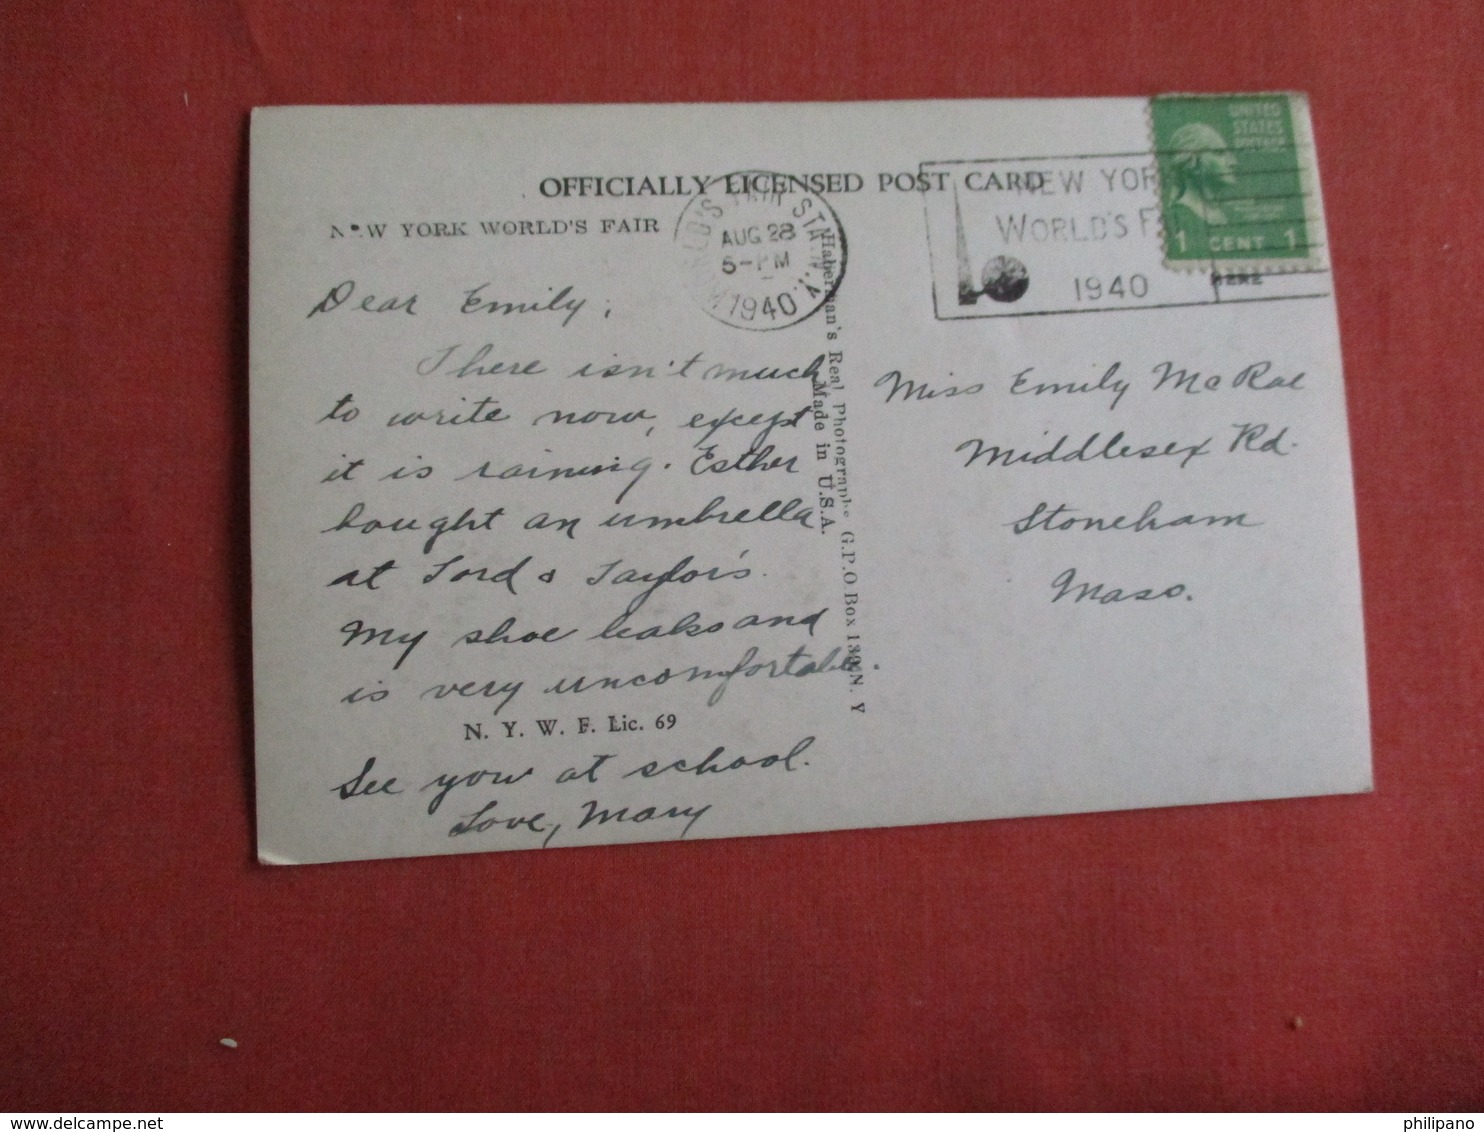 OFFICIALLY LICENSED POST CARD
NEW YORK WORLD'S FAIR
Dear Emily,
There isn't much
to write now, except
it is raining. Esther
bought an umbrella
at Lord & Taylor's.
My shoe leaks and
is very uncomfortable.
N. Y. W. F. Lic. 69
See you at school.
Love, Mary
WORLD'S FAIR STA. N.Y.
AUG 28
5-PM
1940
Haberman's Real Photographs G.P.O Box 130 N. Y
Made in U.S.A.
NEW YORK
WORLD'S FA
1940
UNITED
STATES
POSTAGE
1 CENT 1
HERE
Miss Emily McRae
Middlesex Rd.
Stoneham
Mass.
www.delcampe.net
philipano